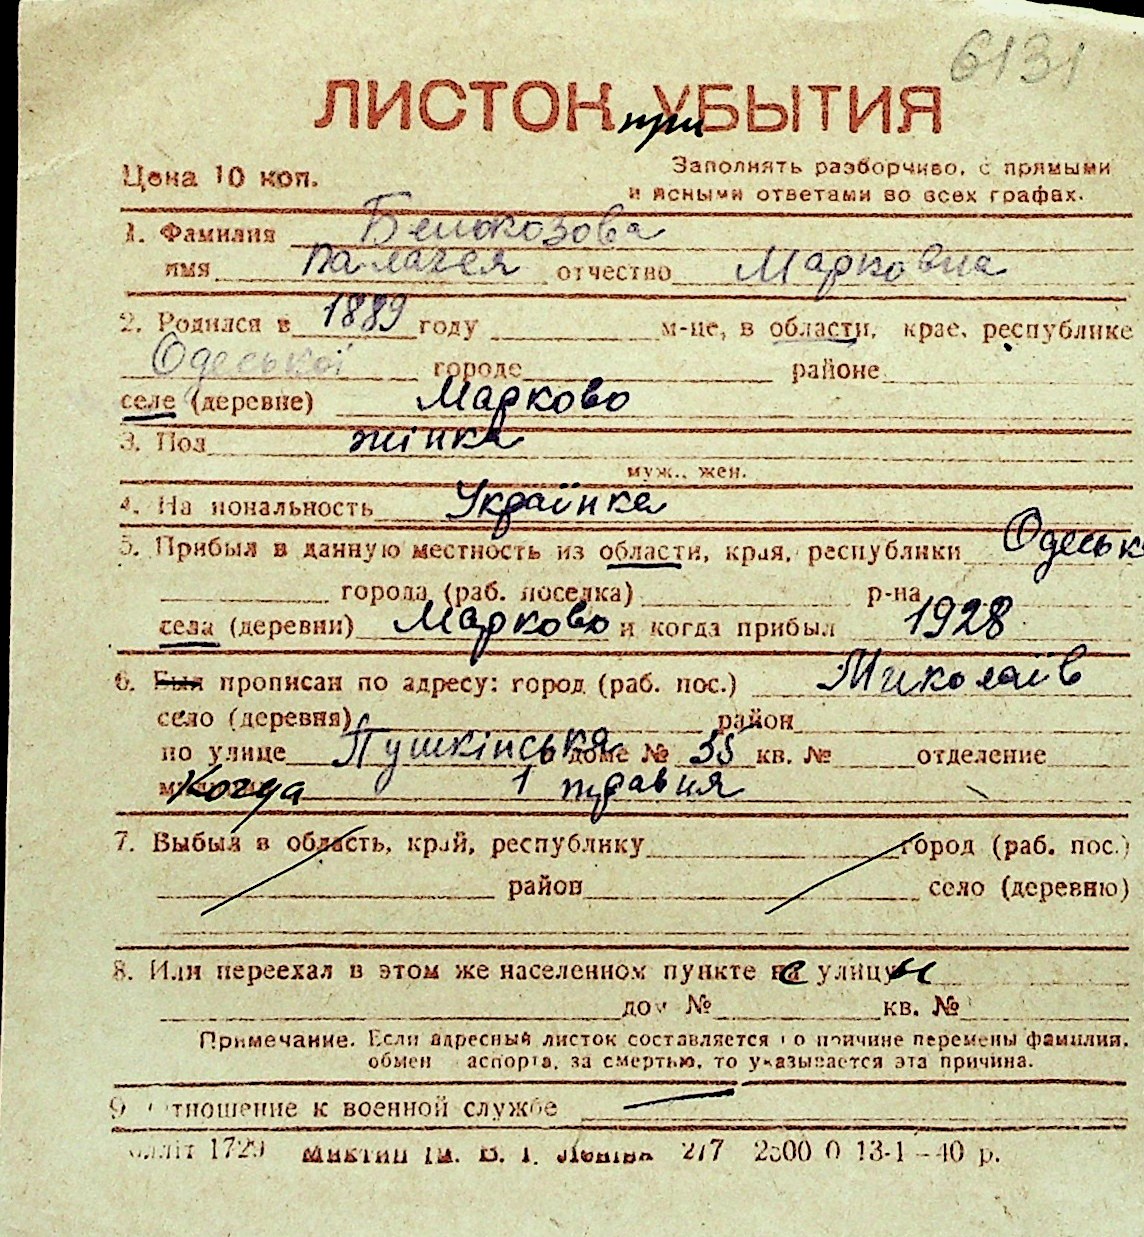 6131
ЛИСТОК при УБЫТИЯ
Цена 10 коп.
Заполнять разборчиво, с прямыми
и ясными ответами во всех графах.
1. Фамилия Белокозова
имя Палагея отчество Марковна
2. Родился в 1889 году м-це, в области, крае, республике
Одеської городе районе
селе (деревне) Марково
3. Пол жінка
муж., жен.
4. На иональность Українка
5. Прибыл в данную местность из области, края, республики Одеськ
города (раб. поселка) р-на
села (деревни) Марково и когда прибыл 1928
6. Был прописан по адресу: город (раб. пос.) Миколаїв
село (деревня) район
по улице Пушкінська доме № 35 кв. № отделение
Когда 1 травня
7. Выбыл в область, край, республику город (раб. пос.)
район село (деревню)
8. Или переехал в этом же населенном пункте с улицы
дом № кв. №
Примечание. Если адресный листок составляется по причине перемены фамилии,
обмен аспорта, за смертью, то указывается эта причина.
9 тношение к военной службе
лліт 1729 ім. В. І. Леніна 2/7 13-1-40 р.